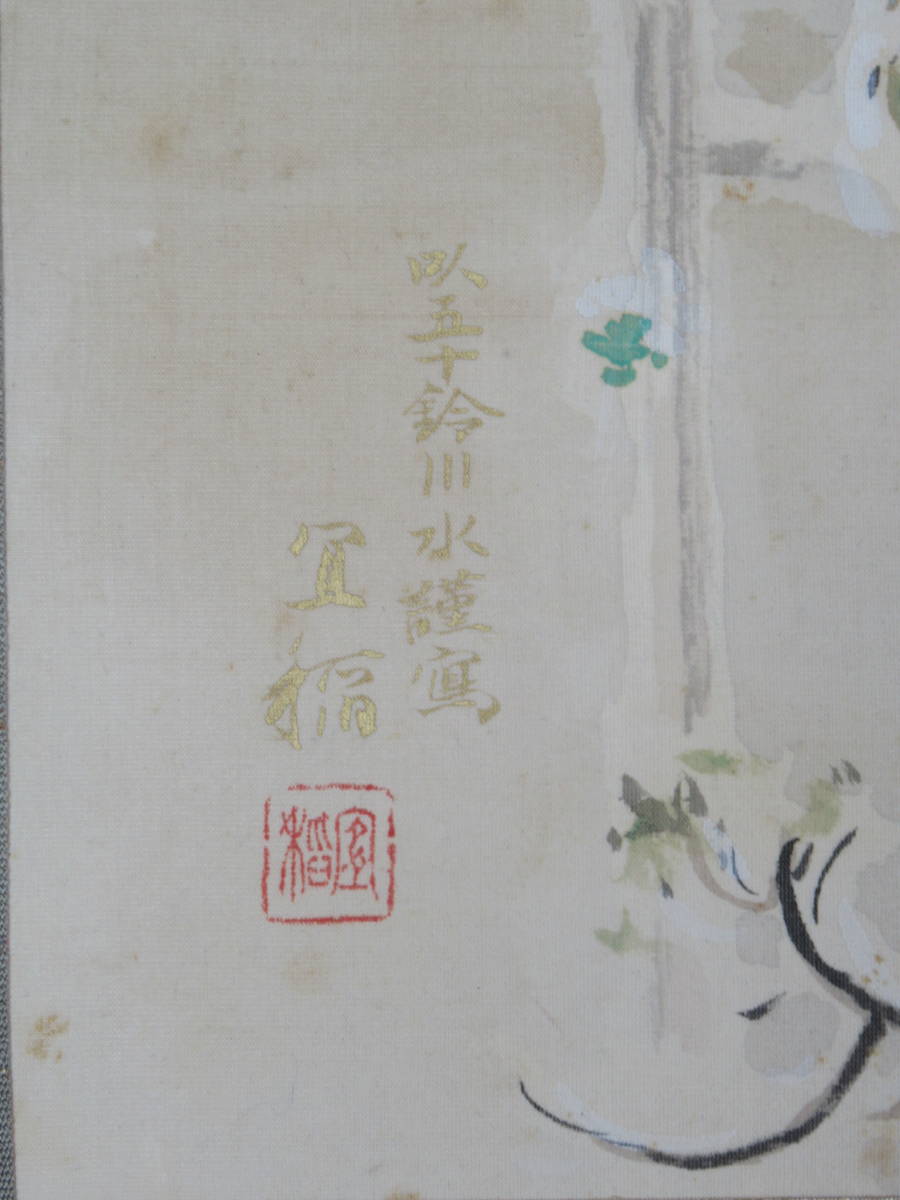 以五十鈴川水謹寫
宜稲
宜稲